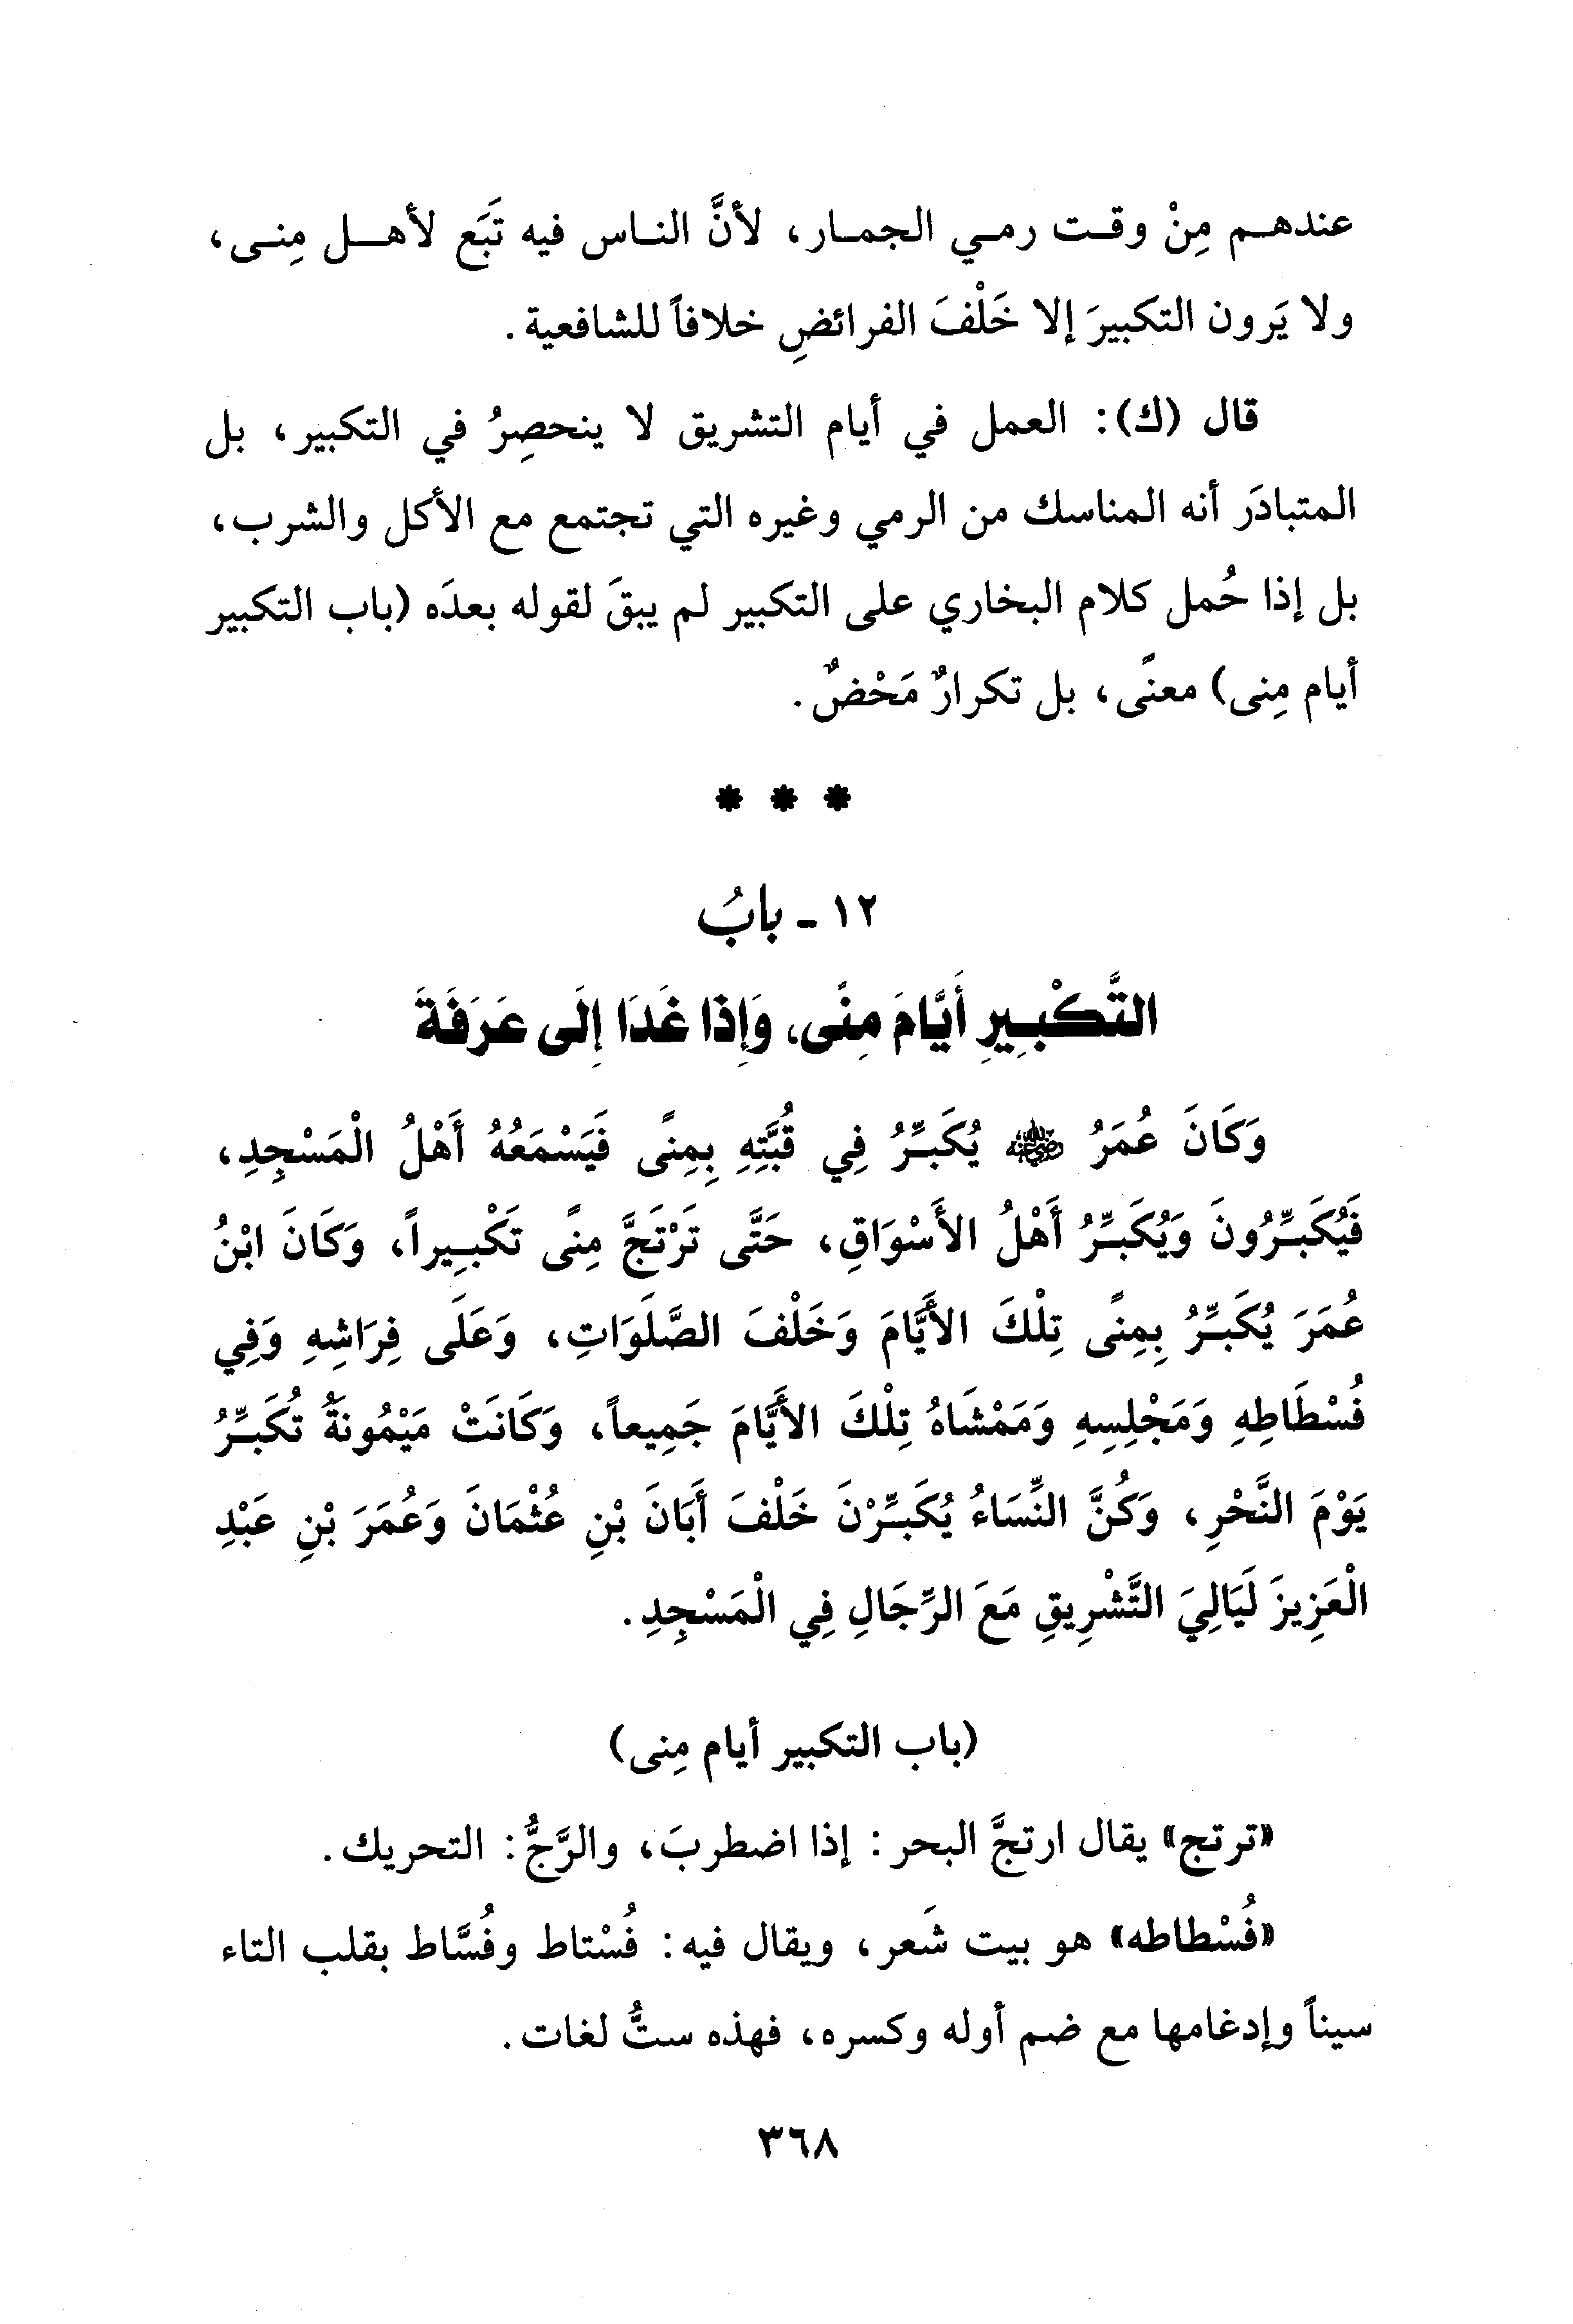 عندهـم مِنْ وقـت رمـي الجمـار، لأنَّ النـاس فيه تَبَع لأهـل مِنـى،
ولا يَرون التكبيرَ إلا خَلْفَ الفرائضِ خلافاً للشافعية.
قال (ك): العمل في أيام التشريق لا ينحصِرُ في التكبير، بل
المتبادَر أنه المناسك من الرمي وغيره التي تجتمع مع الأكل والشرب،
بل إذا حُمل كلام البخاري على التكبير لم يبقَ لقوله بعدَه (باب التكبير
أيام مِنى) معنًى، بل تكرارٌ مَحْضٌ.
* * *
١٢ - بابُ
التَّكْبِيرِ أَيَّامَ مِنًى، وَإِذا غَدَا إِلَى عَرَفَةَ
وَكَانَ عُمَرُ ﵁ يُكَبِّرُ فِي قُبَّتِهِ بِمِنًى فَيَسْمَعُهُ أَهْلُ الْمَسْجِدِ،
فَيُكَبِّرُونَ وَيُكَبِّرُ أَهْلُ الأَسْوَاقِ، حَتَّى تَرْتَجَّ مِنًى تَكْبِيراً، وَكَانَ ابْنُ
عُمَرَ يُكَبِّرُ بِمِنًى تِلْكَ الأَيَّامَ وَخَلْفَ الصَّلَوَاتِ، وَعَلَى فِرَاشِهِ وَفِي
فُسْطَاطِهِ وَمَجْلِسِهِ وَمَمْشَاهُ تِلْكَ الأَيَّامَ جَمِيعاً، وَكَانَتْ مَيْمُونَةُ تُكَبِّرُ
يَوْمَ النَّحْرِ، وَكُنَّ النِّسَاءُ يُكَبِّرْنَ خَلْفَ أَبَانَ بْنِ عُثْمَانَ وَعُمَرَ بْنِ عَبْدِ
الْعَزِيزَ لَيَالِيَ التَّشْرِيقِ مَعَ الرِّجَالِ فِي الْمَسْجِدِ.
(باب التكبير أيام مِنى)
«ترتج» يقال ارتجَّ البحر: إذا اضطربَ، والرَّجُّ: التحريك.
«فُسْطاطه» هو بيت شَعر، ويقال فيه: فُسْتاط وفُسَّاط بقلب التاء
سيناً وإدغامها مع ضم أوله وكسره، فهذه ستُّ لغات.
٣٦٨